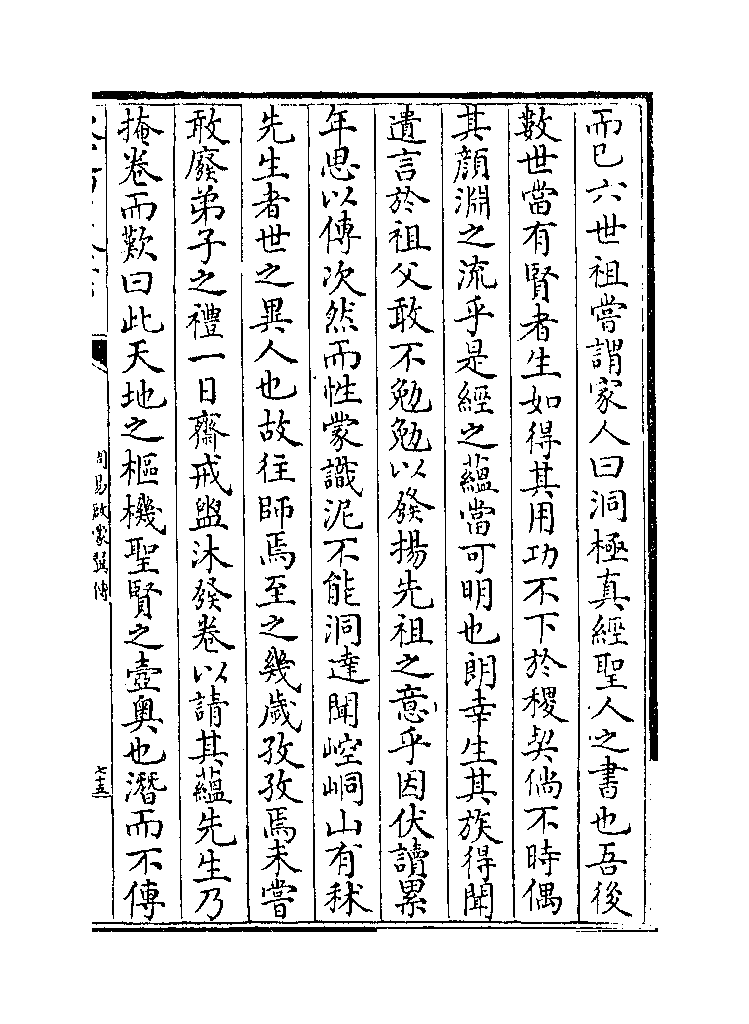 而已六世祖嘗謂家人曰洞極真經聖人之書也吾後
數世當有賢者生如得其用功不下於稷契倘不時偶
其顔淵之流乎是經之蘊當可明也朗幸生其族得聞
遺言於祖父敢不勉勉以發揚先祖之意乎因伏讀累
年思以傳次然而性蒙識泥不能洞達聞崆峒山有秫
先生者世之異人也故往師焉至之幾歲孜孜焉未嘗
敢廢弟子之禮一日齋戒盥沐發卷以請其蘊先生乃
掩卷而歎曰此天地之樞機聖賢之壼奥也潛而不傳
周易啟蒙翼傳
七十五